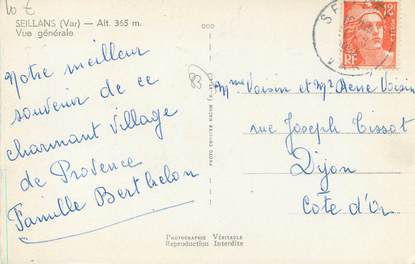 10 €
SEILLANS (Var) — Alt. 365 m.
Vue générale
Notre meilleur
souvenir de ce
charmant village
de Provence
Famille Berthelon
83
12 F
RF
Mme Voisin et Mr René Voisin
rue Joseph Tissot
Dijon
Côte d'Or
PHOTOGRAPHIE VÉRITABLE
Reproduction Interdite